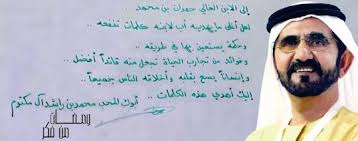 إلى الابن الغالي حمدان بن محمد
لعل أغلى ما يهديه أب لابنه كلمات تنفعه ..
وحكمة يستعين بها في طريقه ..
وفوائد من تجارب الحياة تجعل منه قائداً أفضل ..
وإنساناً يسع بقلبه وأخلاقه الناس جميعاً ..
إليك أهدي هذه الكلمات ..
أبوك المحب محمد بن راشد آل مكتوم
ومضات
من فكر